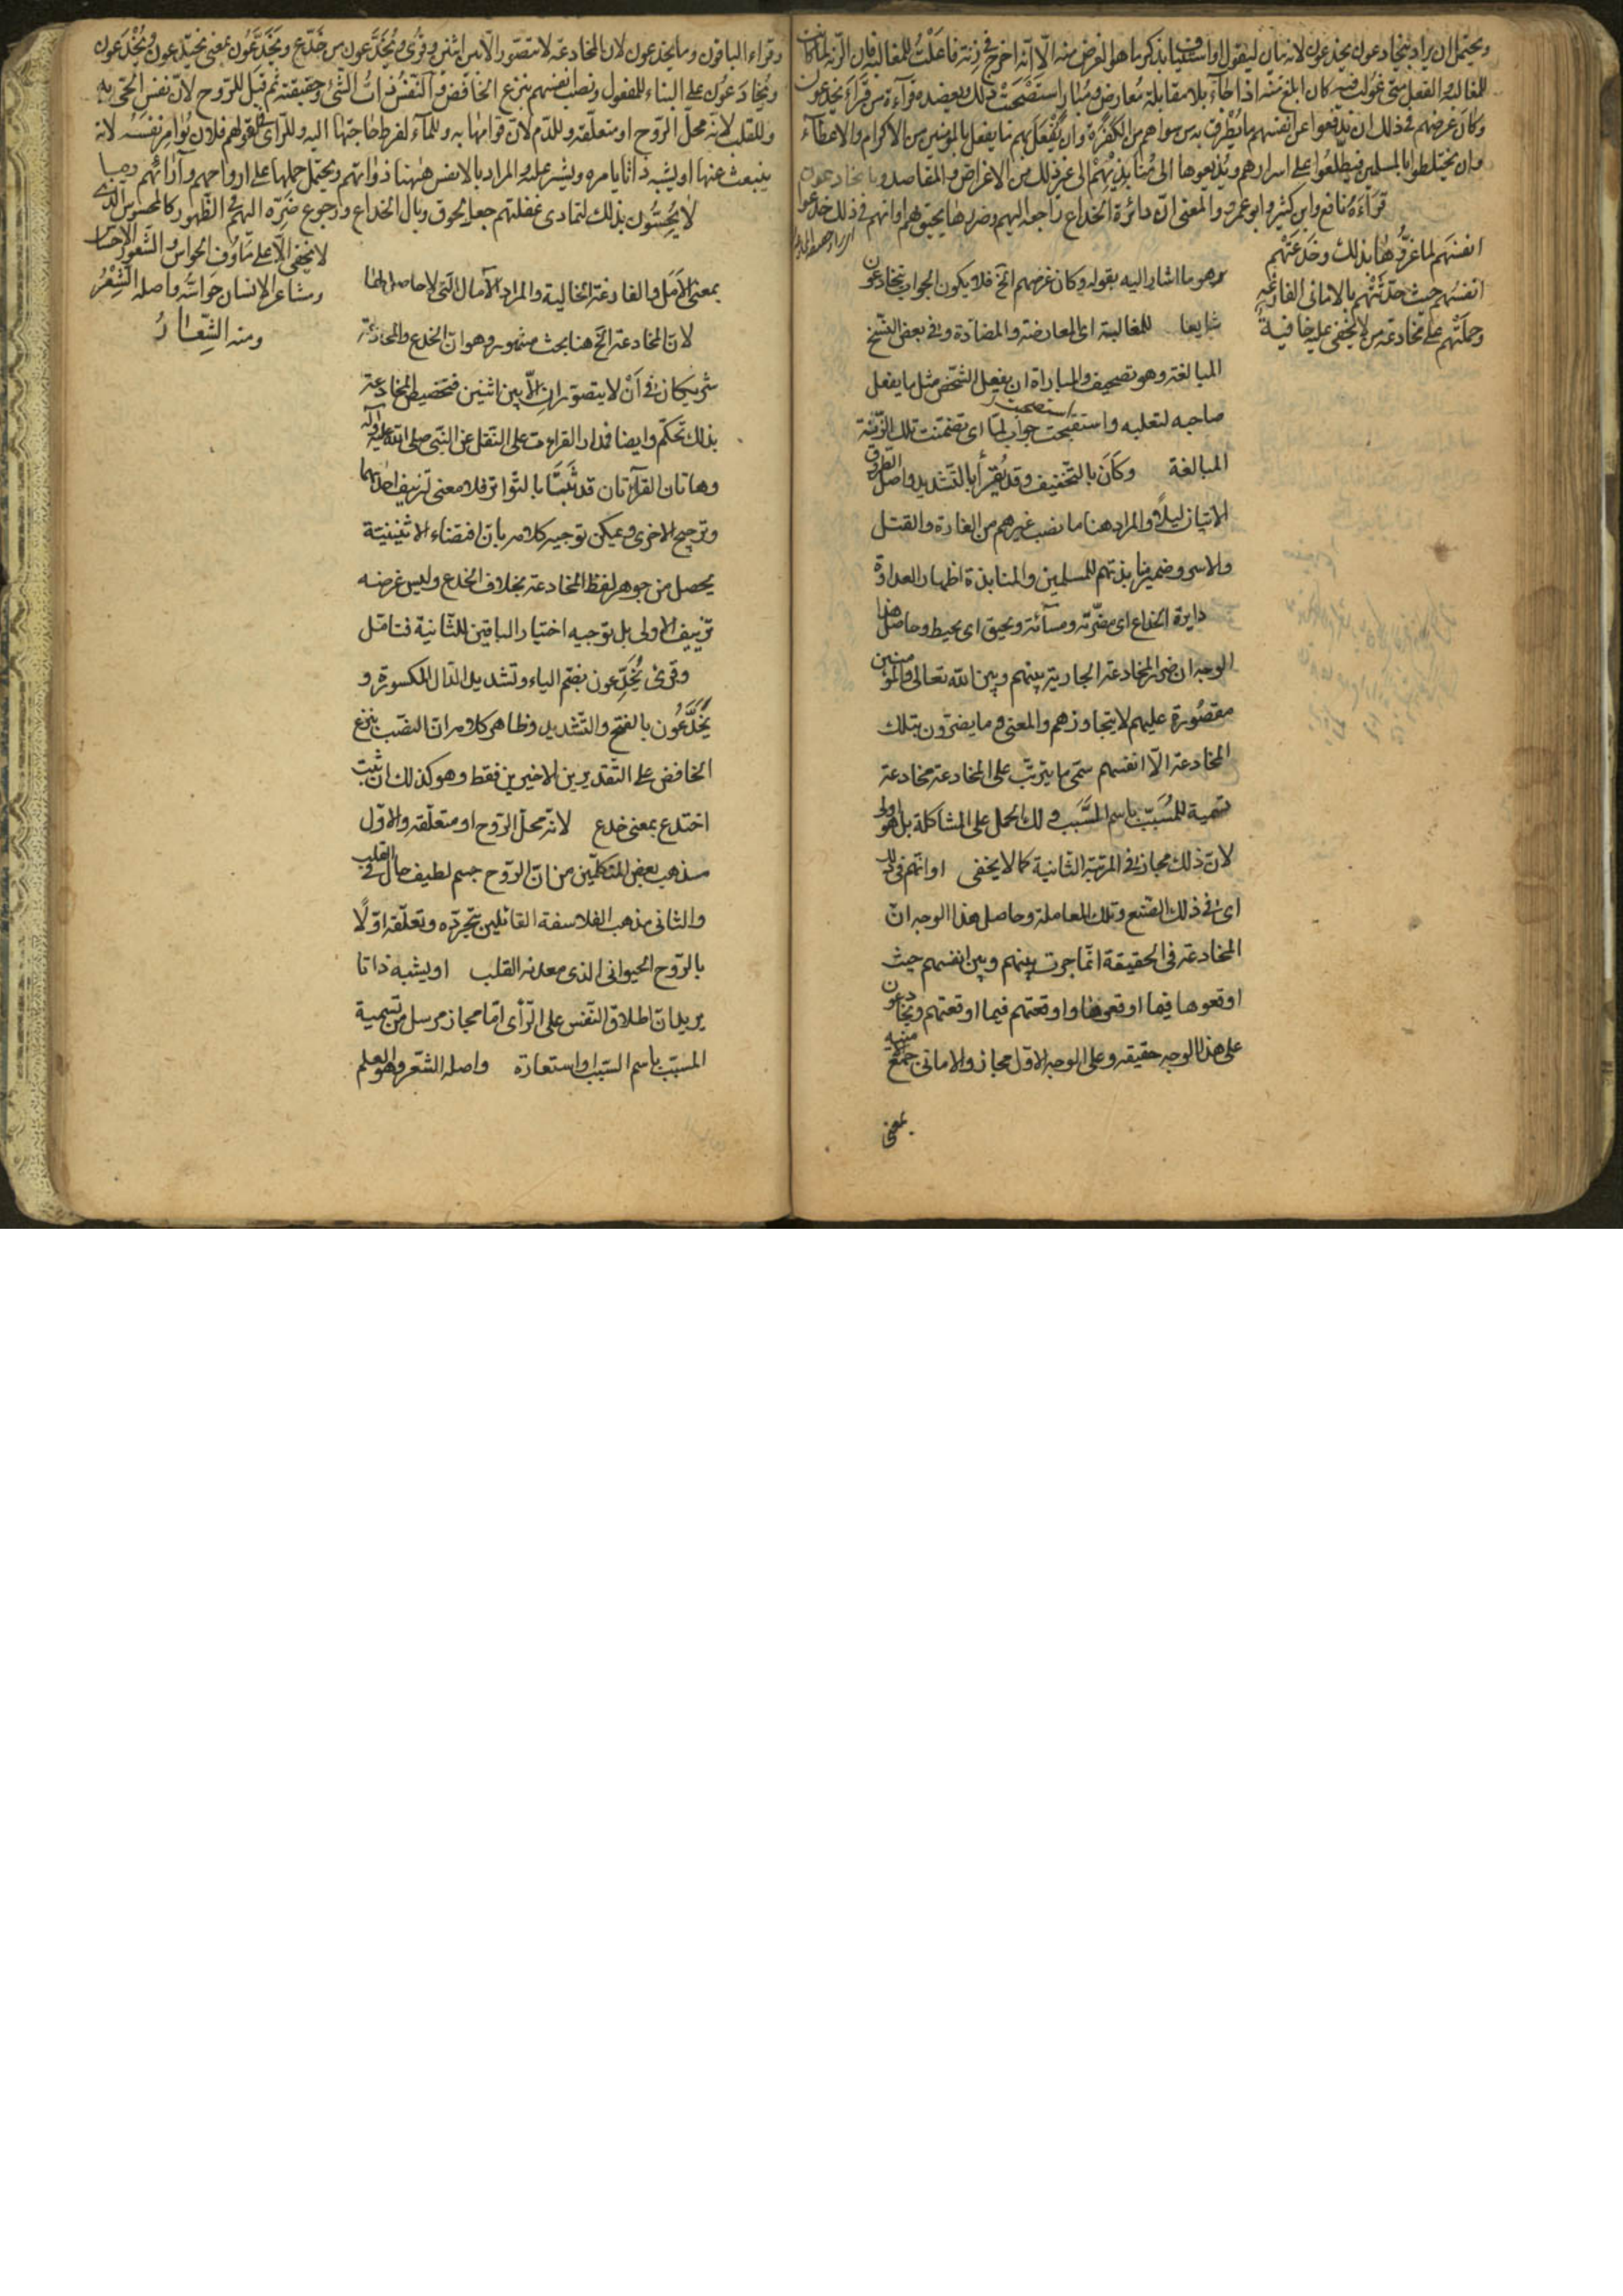 ويحتمل ان يراد بيخادعون يخدعون لانه بيان ليقول او استيناف بذكر ما هو الغرض منه الا انه اخرج فى زنة فاعلت للمغالبة فان الزنة لما كانت
للمغالبة والفعل متى غولب فيه كان ابلغ منه اذا جاء بلا مقابلة معارض ومبار استصحبت ذلك ويعضده قراءة من قرأ يخدعون
وكان غرضهم فى ذلك ان يدفعوا عن انفسهم ما يطرق به من سواهم من الكفرة وان يفعل بهم ما يفعل بالمؤمنين من الاكرام والاعطاء
وان يختلطوا بالمسلمين فيطلعوا على اسرارهم ويذيعوها الى منابذيهم الى غير ذلك من الاغراض والمقاصد وما يخادعون
قراءة نافع وابن كثير وابو عمرو والمعنى ان دائرة الخداع راجعة اليهم وضررها يحيق بهم او انهم فى ذلك خدعوا
انفسهم لما غروها بذلك وخدعتهم
انفسهم حيث حدثتهم بالامانى الفارغة
وحملتهم على مخادعة من لا يخفى عليه خافية
وهو ما اشار اليه بقوله وكان غرضهم الخ فلا يكون الجواب بيخادعون
شايعا للمغالبة اى المعارضة والمضادة وفى بعض النسخ
المبالغة وهو تصحيف والمباراة ان يفعل الشخص مثل ما يفعل
صاحبه لتغلبه واستصحبت جواب لما اى تضمنت تلك الزنة
المبالغة وكان بالتخفيف وقد يقرأ بالتشديد واصل الطروق
الاتيان ليلا والمراد هنا ما نصب غيرهم من الغارة والقتل
والاسر وضمير منابذتهم للمسلمين والمنابذة اظهار العداوة
دايرة الخداع اى مضرته ومسائته ويحيق اى يحيط وحاصل هذا
الوجه ان ضرر المخادعة الجارية بينهم وبين الله تعالى والمؤمنين
مقصورة عليهم لا يتجاوزهم والمعنى وما يضرون بتلك
المخادعة الا انفسهم سمى ما يترتب على المخادعة مخادعة
تسمية للمسبب باسم السبب ولك الحمل على المشاكلة بل هو اولى
لان ذلك مجاز فى المرتبة الثانية كما لا يخفى او انهم فى ذلك
اى فى ذلك الصنع وتلك المعاملة وحاصل هذا الوجه ان
المخادعة فى الحقيقة انما جرت بينهم وبين انفسهم حيث
اوقعوها فيما اوقعوها واوقعتهم فيما اوقعتهم ويخادعون
على هذا الوجه حقيقة وعلى الوجه الاول مجاز والامانى جمع منية
بمعنى
وقرأ الباقون وما يخدعون لان المخادعة لا تتصور الا بين اثنين وقرئ ويخدعون من خدع ويخدعون بمعنى يختدعون ويخدعون
ويخادعون على البناء للمفعول ونصب انفسهم بنزع الخافض والنفس ذات الشئ وحقيقته ثم قيل للروح لان نفس الحى به
وللقلب لانه محل الروح او متعلقه وللدم لان قوامها به وللماء لفرط حاجتها اليه وللرأى فى قولهم فلان يؤامر نفسه لانه
ينبعث عنها او يشبه ذاتا يامره ويشير عليه والمراد بالانفس ههنا ذواتهم ويحتمل حملها على ارواحهم وآرائهم وما
لا يحسون بذلك لتمادى غفلتهم جعل لحوق وبال الخداع ورجوع ضرره اليهم فى الظهور كالمحسوس الذى
لا يخفى الا على مأوف الحواس والشعور الاحساس
ومشاعر الانسان حواسه واصله الشعر
ومنه الشعار
بمعنى الامل والفارغة الخالية والمراد الآمال التى لا حاصل لها
لان المخادعة الخ هنا بحث مشهور وهو ان الخدع والمخادعة
شريكان فى ان لا يتصوران الا بين اثنين فتخصيص المخادعة
بذلك تحكم وايضا فمدار القراءات على النقل عن النبى صلى الله عليه وآله
وهاتان القراءتان قد ثبتتا بالتواتر فلا معنى لتزييف احديهما
وترجيح الاخرى ويمكن توجيه كلامه بان اقتضاء الاثنينية
يحصل من جوهر لفظ المخادعة بخلاف الخدع وليس غرضه
تزييف الاولى بل توجيه اختيار الباقين للثانية فتامل
وقرئ يخدعون بضم الياء وتشديد الدال المكسورة و
يخدعون بالفتح والتشديد وظاهر كلامه ان النصب بنزع
الخافض على التقديرين الاخيرين فقط وهو كذلك ان ثبت
اختدع بمعنى خدع لانه محل الروح او متعلقه والاول
مذهب بعض المتكلمين من ان الروح جسم لطيف حال فى القلب
والثانى مذهب الفلاسفة القائلين بتجرده وتعلقه اولا
بالروح الحيوانى الذى معدنه القلب او يشبه ذاتا
يريد ان اطلاق النفس على الرأى اما مجاز مرسل من تسمية
المسبب باسم السبب او استعارة واصله الشعر وهو العلم